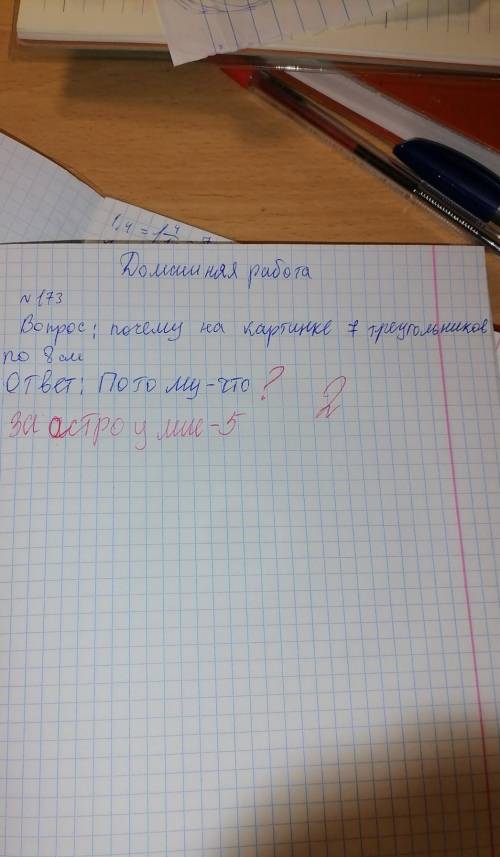 1/4 = 1 4
Домашняя работа
№173
Вопрос: почему на картинке 7 треугольников
по 8 см
Ответ: Потому-что ? 2
За остроумие-5